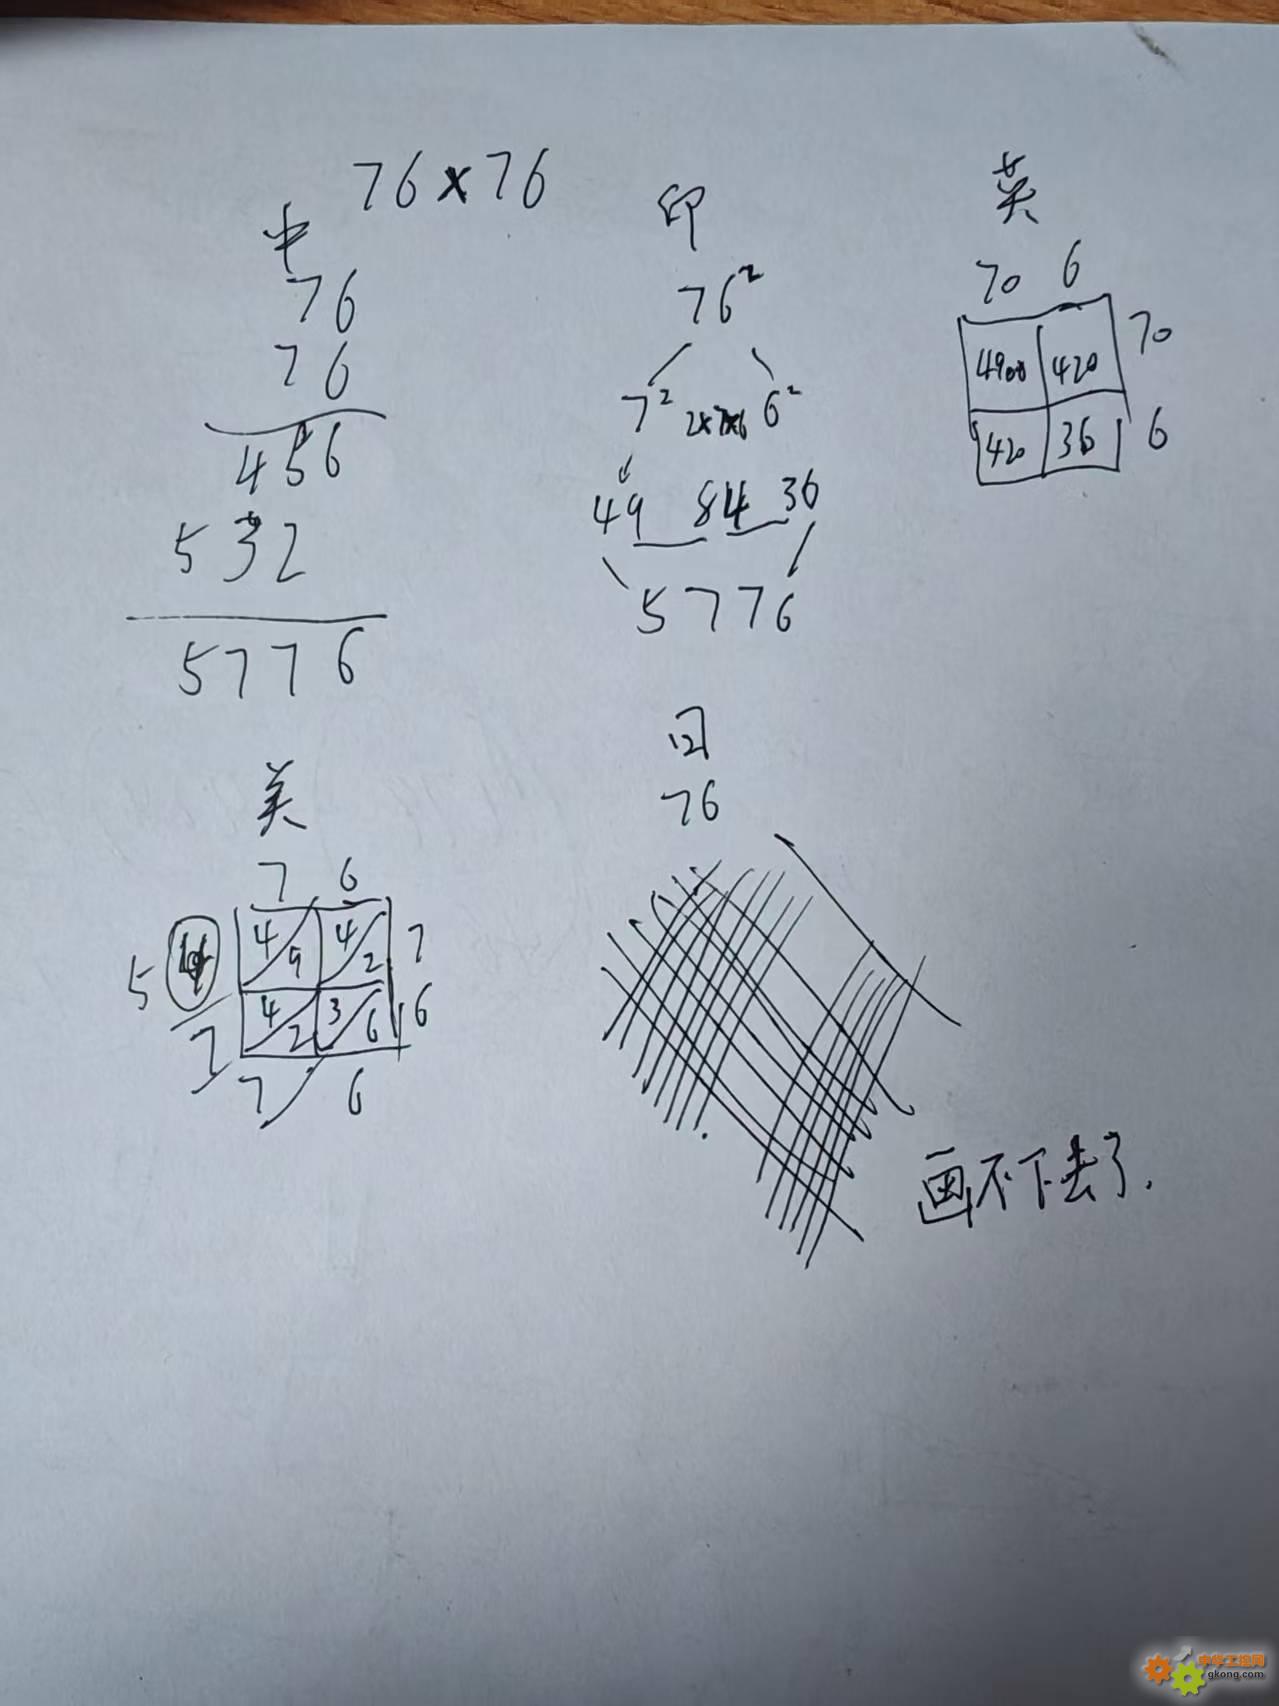 76×76
中
76
76
456
532
5776
印
76²
7² 2×7×6 6²
49 84 36
5776
英
70 6
4900 420 70
420 36 6
美
7 6
4 9 4 2 7
5
4 2 3 6 6
7
7 6
日
76
画不下去了.
中华工控网
gkong.com